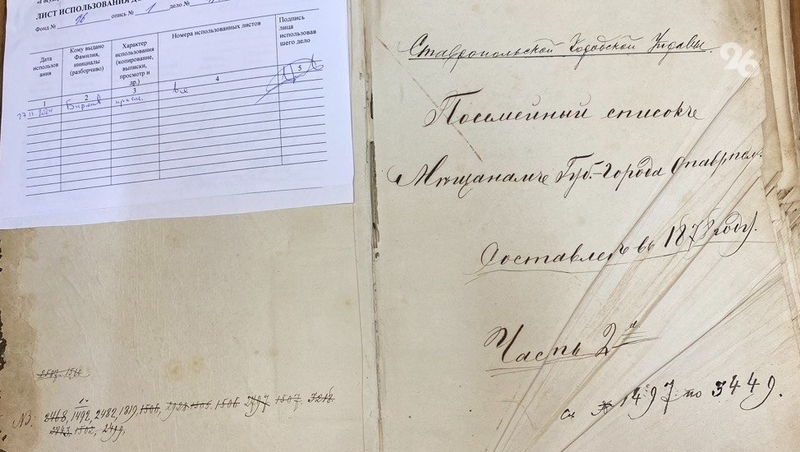 ЛИСТ ИСПОЛЬЗОВАНИЯ Д
Фонд № 96 опись № 1 дело №
Дата использования
Кому выдано Фамилия, инициалы (разборчиво)
Характер использования (копирование, выписки, просмотр и др.)
Номера использованных листов
Подпись лица использовавшего дело
1 2 3 4 5
Ставропольской Городской Управы.
Посемейный списокъ
Мѣщанамъ Губ. Города Ставропол
Составленъ въ 187 году.
Часть 2я
съ № 1497 по 3449.
№ 2468, 1492, 2482, 1819, 1506, 1505, 1506, 2497, 1507, 3218,
1502, 2499,